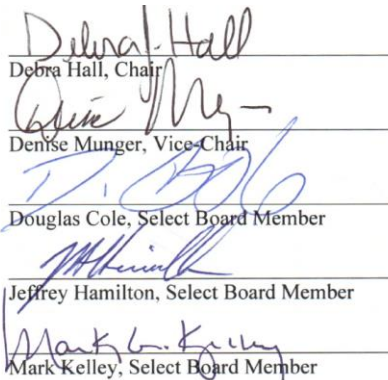 Debra J. Hall
Debra Hall, Chair
Denise
Denise Munger, Vice-Chair
Douglas Cole, Select Board Member
Jeffrey Hamilton, Select Board Member
Mark G. Kelley
Mark Kelley, Select Board Member